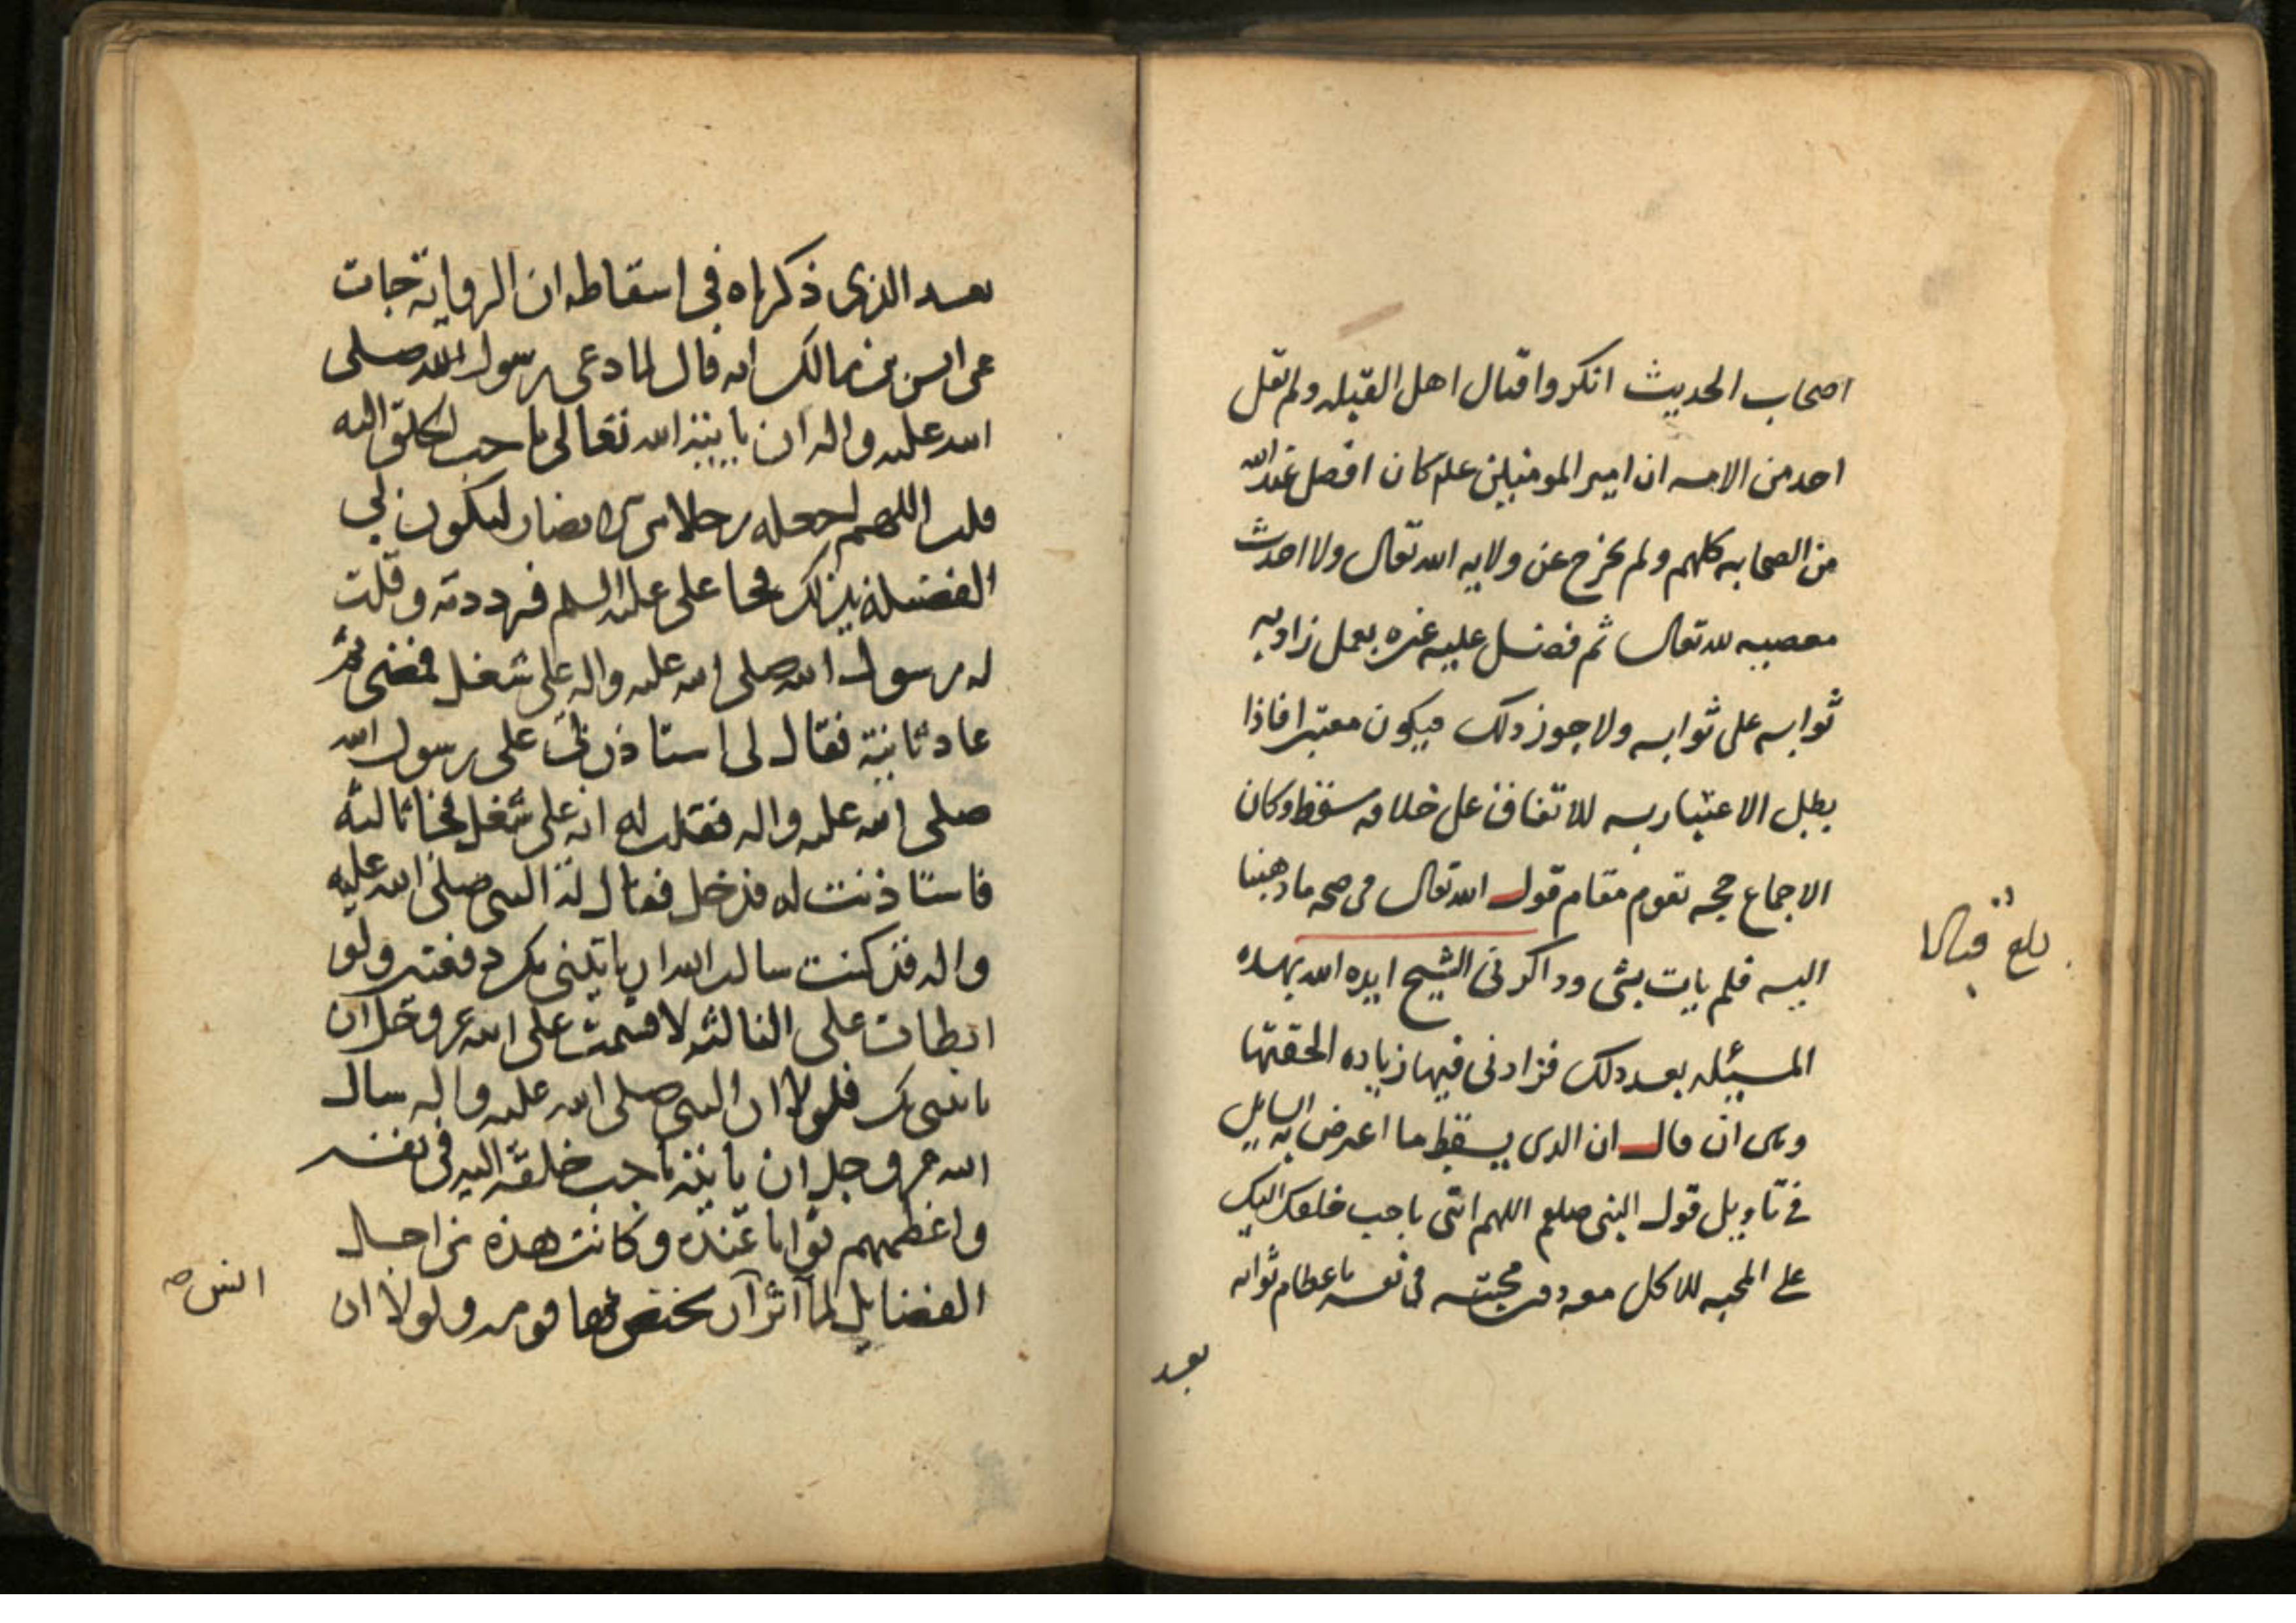 اصحاب الحديث انكروا قتال اهل القبله ولم يقل
احد من الامه ان امير المومنين علم كان افضل عند الله
من الصحابه كلهم ولم يخرج عن ولايه الله تعال ولا احدث
معصيه لله تعال ثم فضل عليه غيره بعمل زاد به
ثوابه على ثوابه ولا جوز دلك فيكون معتبرا فاذا
بطل الاعتبار به للاتفاق على خلافه سقط وكان
الاجماع حجه تقوم مقام قول الله تعال فى صحه ما ذهبنا
اليه فلم يات بشى وداكرنى الشيخ ايده الله بهده
المسيله بعد دلك فزادنى فيها زياده الحقتها
وهى ان قال ان الدى يسقط ما اعترض به السايل
فى تاويل قول النبى صلعم اللهم ائتنى باحب خلقك اليك
على المحبه للاكل معه دون محبته فى نفسه باعظام ثوابه
بعد
بلغ قبالا
بعد الذى ذكرناه فى اسقاطه ان الرواية جات
عن انس بن مالك انه قال لما دعى رسول الله صلى
الله عليه واله ان ياتيه الله تعالى باحب الخلق اليه
قلت اللهم اجعله رجلا من الانصار ليكون لى
الفضيلة بذلك فجا على عليه السلم فرددته وقلت
له رسول الله صلى الله عليه واله على شغل فمضى ثم
عاد ثانية فقال لى استاذن لى على رسول الله
صلى الله عليه واله فقلت له انه على شغل فجا ثالثة
فاستاذنت له فدخل فقال له النبى صلى الله عليه
واله قد كنت سالت الله ان ياتينى بك دفعتين ولو
ابطات على الثالثه لاقسمت على الله عز وجل ان
ياتينى بك فلولا ان النبى صلى الله عليه واله سال
الله عز وجل ان ياتيه باحب خلقه اليه فى نفسه
واعظمهم ثوابا عنده وكانت هذه من اجل
الفضايل لما آثر ان يختص بها قومه ولولا ان
انس